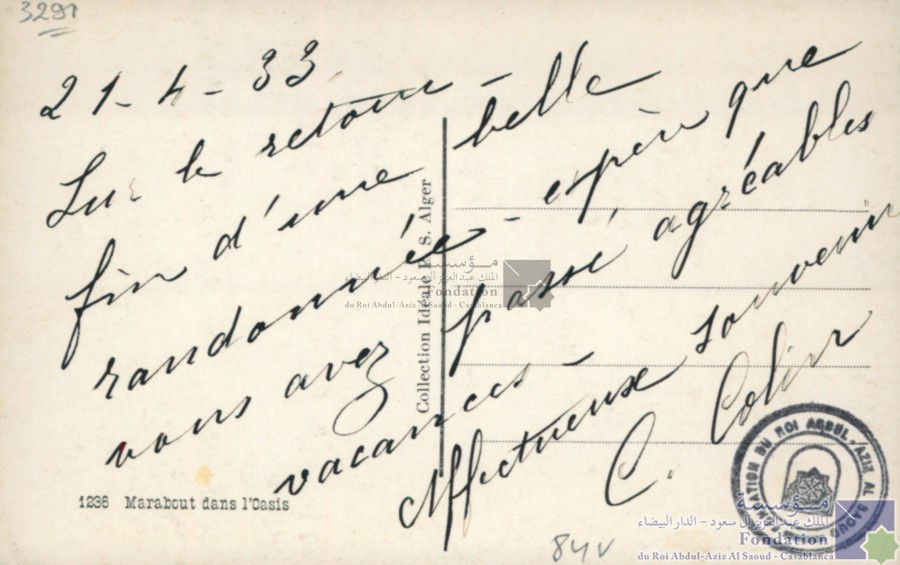 3291
21-4-33
Sur le retour -
fin d'une belle
randonnée - espère que
vous avez passé agréables
vacances -
Affectueux souvenir
C. Colin
Collection Idéale P. S. Alger
1236 Marabout dans l'Oasis
84v
مؤسسة
الملك عبد العزيز آل سعود - الدار البيضاء
Fondation
du Roi Abdul-Aziz Al Saoud - Casablanca
FONDATION DU ROI ABDUL-AZIZ AL SAOUD
مؤسسة
الملك عبد العزيز آل سعود - الدار البيضاء
Fondation
du Roi Abdul-Aziz Al Saoud - Casablanca